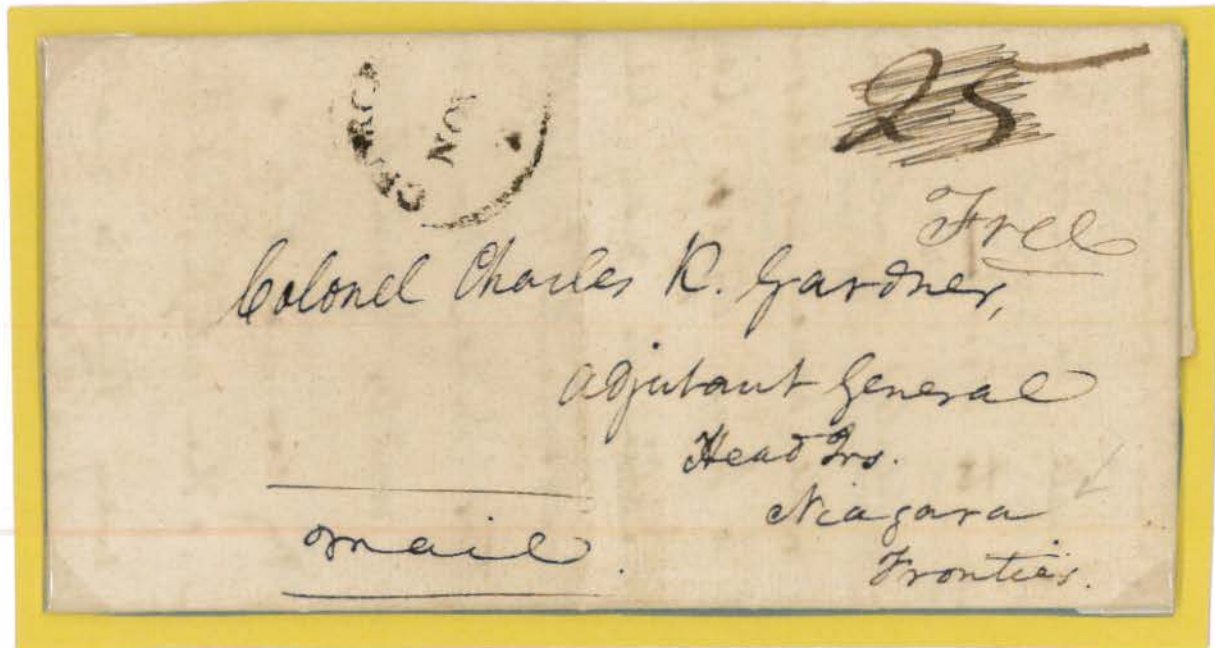 NOV
25
Free
Colonel Charles K. Gardner,
Adjutant General
Head Qrs.
Niagara
Frontier.
mail.